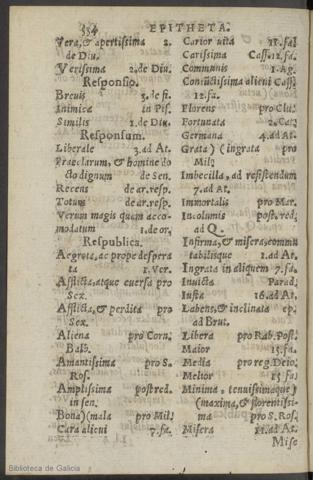 534 EPITHETA.
Vera, & apertissima 2.
de Diu.
Verissima 2. de Diu.
Responsio.
Breuis 3. de fi.
Inimica in Pis.
Similis 1. de Diu.
Responsum.
Liberale 3. ad At.
Praeclarum, & homine do
cto dignum de Sen.
Recens de ar. resp.
Totum de ar. resp.
Verum magis quam acco-
modatum 1. de or,
Respublica.
Aegrota, ac prope despera
ta 1. Ver.
Afflicta, atque euersa pro
Sex.
Afflicta, & perdita pro
Sex.
Aliena pro Corn.
Balb.
Amantissima pro S.
Ros.
Amplissima post red.
in sen.
Bona) (mala pro Mil.
Cara alicui 7. fa.
Carior uita 15. fa.
Carissima Cass. 12. fa.
Communis 1. Ag.
Coniunctissima alicui Cass.
12. fa.
Florens pro Clu.
Fortunata 2. Cat.
Germana 4. ad At.
Grata) (ingrata pro
Mil.
Imbecilla, ad resistendum
7. ad At.
Immortalis pro Mar.
Incolumis post. red.
ad Q.
Infirma, & misera, commu
tabilisque 1. ad At.
Ingrata in aliquem 7. fa.
Inuicta Parad.
Iusta 16. ad At.
Labens, & inclinata ep.
ad Brut.
Libera pro Rab. Post.
Maior 15. fa.
Media pro reg. Deio.
Melior 15. fa.
Minima, tenuissimaque)
(maxima, & florentissi-
ma pro S. Ros.
Misera 11. ad At.
Mise
Biblioteca de Galicia